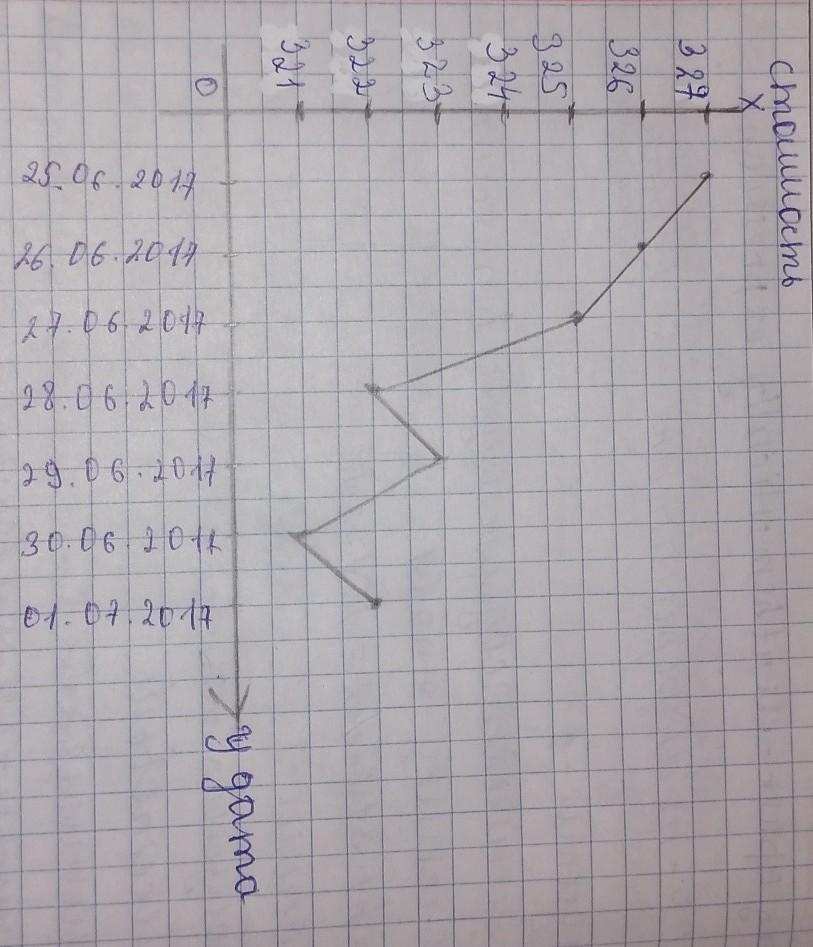 стоимость
X
327
326
325
324
323
322
321
0
25.06.2017
26.06.2017
27.06.2017
28.06.2017
29.06.2017
30.06.2017
01.07.2017
У дата